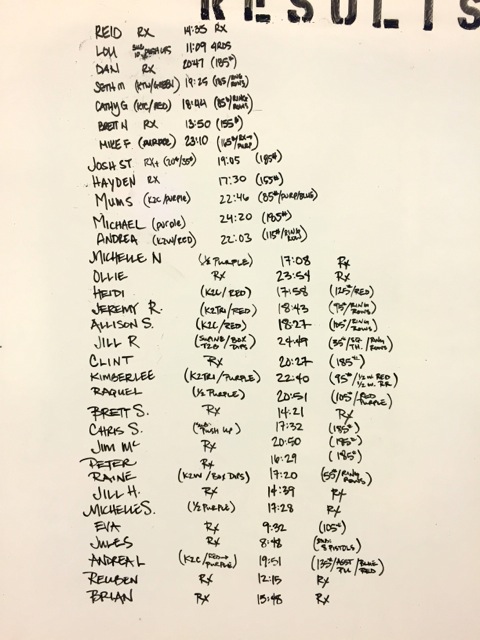 RESULTS
REID RX 14:35 RX
LOU 10 PUSH UPS 11:09 4RDS
DAN RX 20:47 (185#)
SETH M (KTW/GREEN) 19:25 (115/RING ROWS)
CATHY G (K2C/RED) 18:44 (85#/RING ROWS)
BRETT N RX 13:50 (155#)
MIKE F (PURPLE) 23:10 (165#/RX→ PURP.)
JOSH ST RX+ (20#/35#) 19:05 (185#)
HAYDEN RX 17:30 (155#)
MUMS (K2C/PURPLE) 22:46 (85#/PURP/BLUE)
MICHAEL (purple) 24:20 (185#)
ANDREA (K2W/RED) 22:03 (115#/RING ROW)
MICHELLE N (½ PURPLE) 17:08 RX
OLLIE RX 23:54 RX
HEIDI (K2C/RED) 17:58 (125#/RED)
JEREMY R. (K2TRI/RED) 18:43 (95#/RING ROWS)
ALLISON S. (K2C/RED) 18:27 (105#/RING ROWS)
JILL R (SUPINE T2B/BOX DIPS) 24:49 (35# /SQ TH./RING ROWS)
CLINT RX 20:27 (185#)
KIMBERLEE (K2TRI/PURPLE) 22:40 (95#/½ W. RED ½ W. RR)
RAQUEL (½ PURPLE) 20:51 (105#/RED PURPLE)
BRETT S. RX 14:21 RX
CHRIS S. (PUSH UP) 17:32 (185#)
JIM MC RX 20:50 (185#)
PETER RX 16:29 (185#)
RAINE (K2W/BOX DIPS) 17:20 (55#/RING ROWS)
JILL H. RX 14:39 RX
MICHELLE S. (½ PURPLE) 17:28 RX
EVA RX 9:32 (105#)
JULES RX 8:48 (8 PISTOLS)
ANDREA L (K2C/RED→PURPLE) 19:51 (135#/ASST PU/BLUE RED)
REUBEN RX 12:15 RX
BRIAN RX 15:48 RX